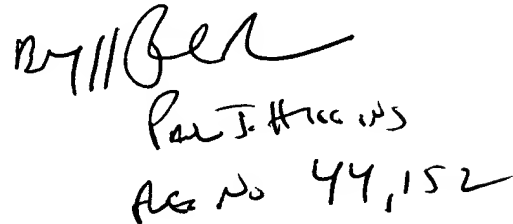 By
Paul J. Higgins
Reg No 44,152